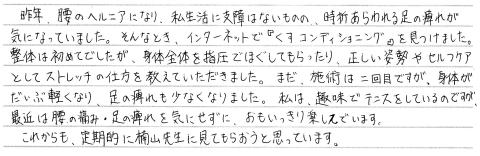 昨年、腰のヘルニアになり、私生活に支障はないものの、時折あらわれる足の痺れが
気になっていました。そんなとき、インターネットで『くすコンディショニング』を見つけました。
整体は初めてでしたが、身体全体を指圧でほぐしてもらったり、正しい姿勢やセルフケア
としてストレッチの仕方を教えていただきました。まだ、施術は二回目ですが、身体が
だいぶ軽くなり、足の痺れも少なくなりました。私は、趣味でテニスをしているのですが、
最近は腰の痛み・足の痺れを気にせずに、おもいっきり楽しんでいます。
これからも、定期的に楠山先生に見てもらおうと思っています。